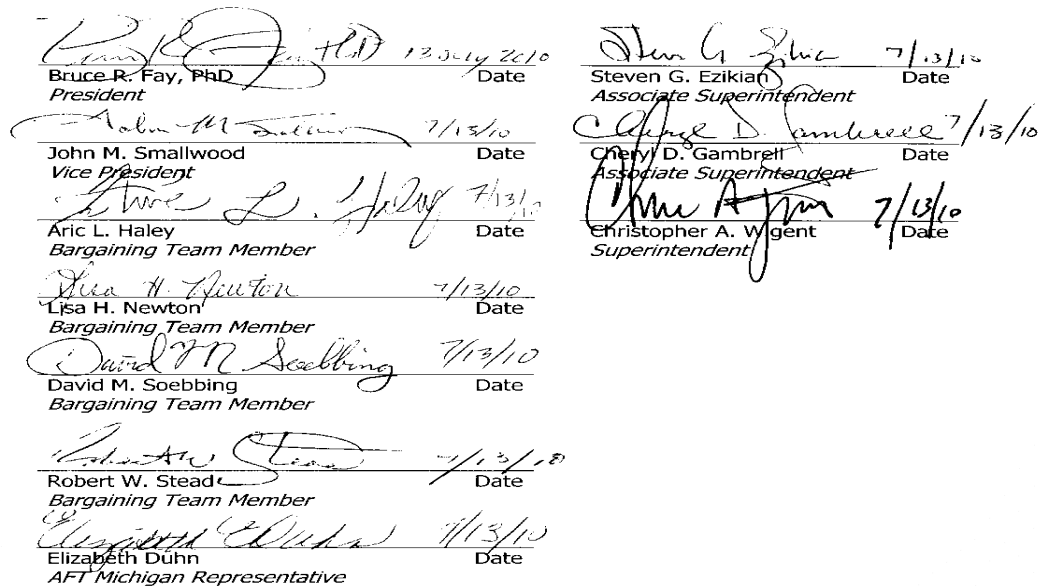 13 July 2010
Bruce R. Fay, PhD Date
President
7/13/10
John M. Smallwood Date
Vice President
7/13/10
Aric L. Haley Date
Bargaining Team Member
Lisa H. Newton 7/13/10
Lisa H. Newton Date
Bargaining Team Member
David M Soebbing 7/13/10
David M. Soebbing Date
Bargaining Team Member
7/13/10
Robert W. Stead Date
Bargaining Team Member
Elizabeth Duhn 7/13/10
Elizabeth Duhn Date
AFT Michigan Representative
Steven G. Ezikian 7/13/10
Steven G. Ezikian Date
Associate Superintendent
Cheryl D. Gambrell 7/13/10
Cheryl D. Gambrell Date
Associate Superintendent
7/13/10
Christopher A. Wigent Date
Superintendent